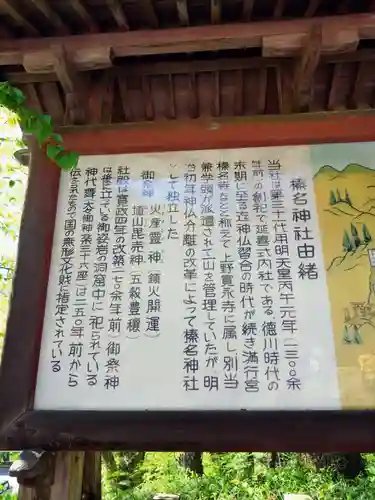 榛名神社由緒
当社は第三十代用明天皇丙午元年一三〇〇余
年前の創祀で延喜式内社である、德川時代の
末期に至る迄神仏習合の時代が続き満行宮
榛名寺などと称えて上野寛永寺に属し別当
兼学頭が派遣されて山を管理していたが明
治初年神仏分離の改革によって榛名神社
として独立した
御祭神 火産霊神(鎮火開運)
埴山毘売神(五穀豊穣)
社殿は寛政四年の改築二〇〇余年前、御祭神
は後立っている御姿岩の洞窟中に祀られている
神代舞(太々御神楽三十六座)は二五〇年前から
伝えたもので国の無形文化財に指定されている